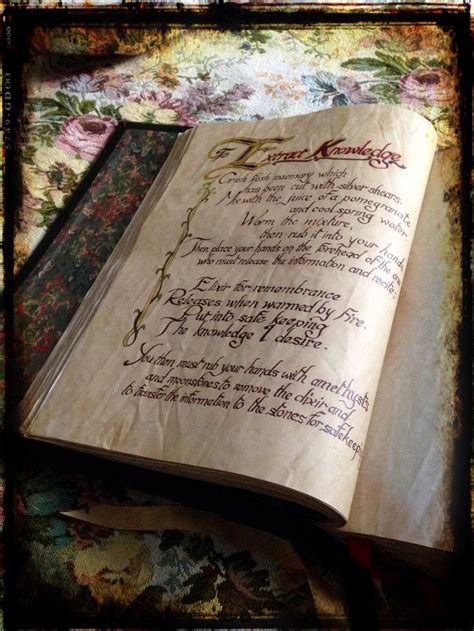 To Extract Knowledge
Crush fresh rosemary which
has been cut with silver shears.
Mix with the juice of a pomegranate
and cool spring water.
Warm the mixture,
then rub it into your hands.
Then place your hands on the forehead of the one
who must release the information and recite;
Elixir for remembrance
Releases when warmed by Fire.
Put into safe keeping
The knowledge I desire.
You then must rub your hands with amethysts
and moonstones to remove the elixir and
to transfer the information to the stones for safekeep